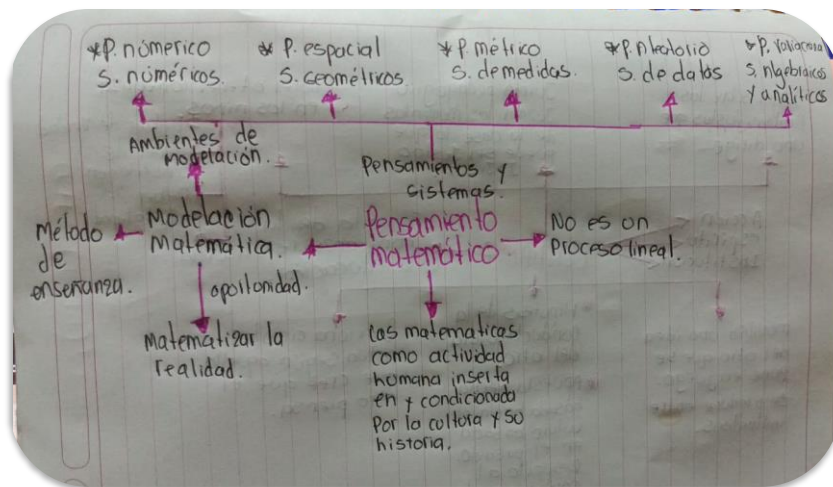 *P. númerico
S. numéricos.
* P. espacial
S. Geométricos.
*P. métrico
S. de medidas.
*P. Aleatorio
S. de datos
*P. Variacional
S. Algebraicos
y analíticos
Ambientes de
Modelación.
Pensamientos y
sistemas.
Método
de
enseñanza.
Modelación
Matemática.
Pensamiento
matemático
No es un
Proceso lineal.
oportunidad.
Matematizar la
realidad.
Las matematicas
como actividad
humana inserta
en y condicionada
Por la cultura y su
historia.